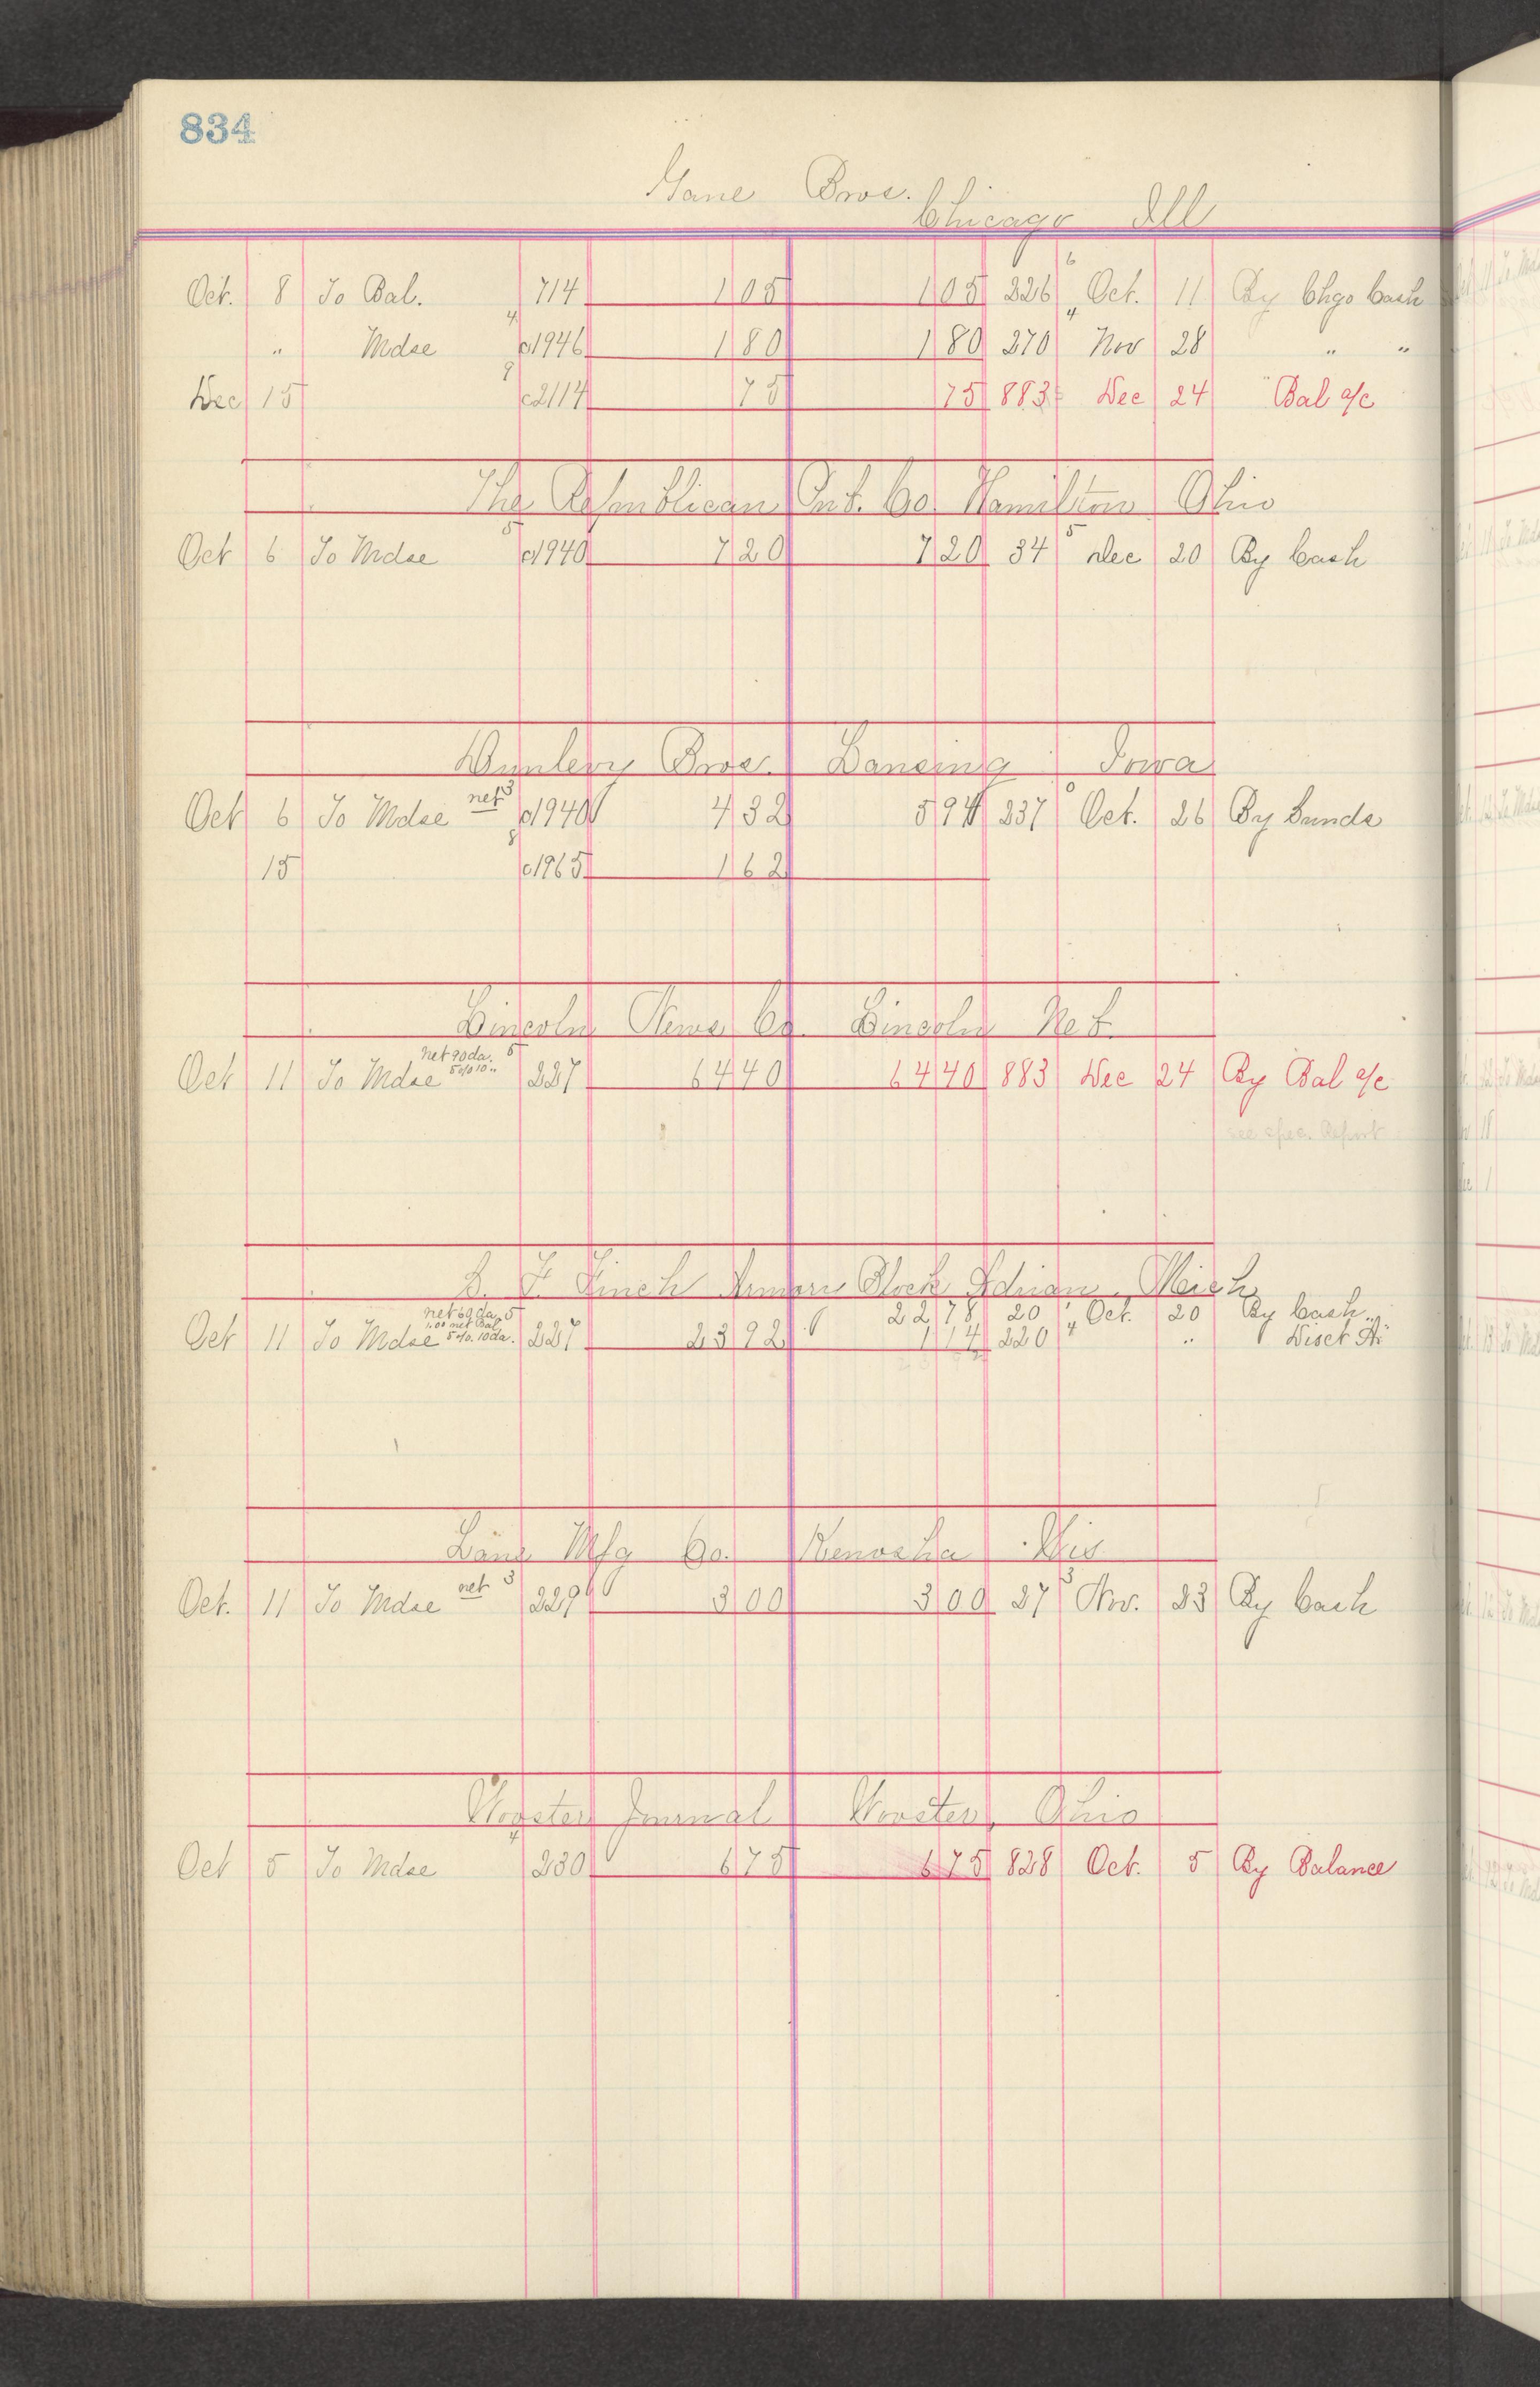 834
Gane Bros.
Chicago Ill
Oct. 8 To Bal. 714 1 05 1 05 226 6 Oct. 11 By Chgo Cash
" Mdse 4 c1946 1 80 1 80 270 4 Nov 28 " "
Dec 15 9 c2114 75 75 883 Dec 24 " Bal a/c
The Republican Pub. Co. Hamilton Ohio
Oct 6 To Mdse 5 c1940 7 20 7 20 34 5 Dec 20 By Cash
Dunlevy Bros. Lansing Iowa
Oct 6 To Mdse net 3 c1940 4 32 5 94 237 Oct. 26 By Sunds
15 8 c1965 1 62
Lincoln News Co. Lincoln Neb.
Oct 11 To Mdse net 90 da. 5 5 % 10 " 227 64 40 64 40 883 Dec 24 By Bal a/c
see spec. Report
Finch Block Adrian, Mich
22 78 20 Oct. 20 By Cash
Oct 11 To Mdse net 60 da. 5 1.00 net Bal. 5 % 10 da. 227 23 92 1 14 220 4 " " Disct
Lane Mfg Co. Kenosha Wis
Oct. 11 To Mdse net 3 229 3 00 3 00 27 3 Nov. 23 By Cash
Wooster Journal Wooster, Ohio
Oct 5 To Mdse 4 230 6 75 6 75 828 Oct. 5 By Balance